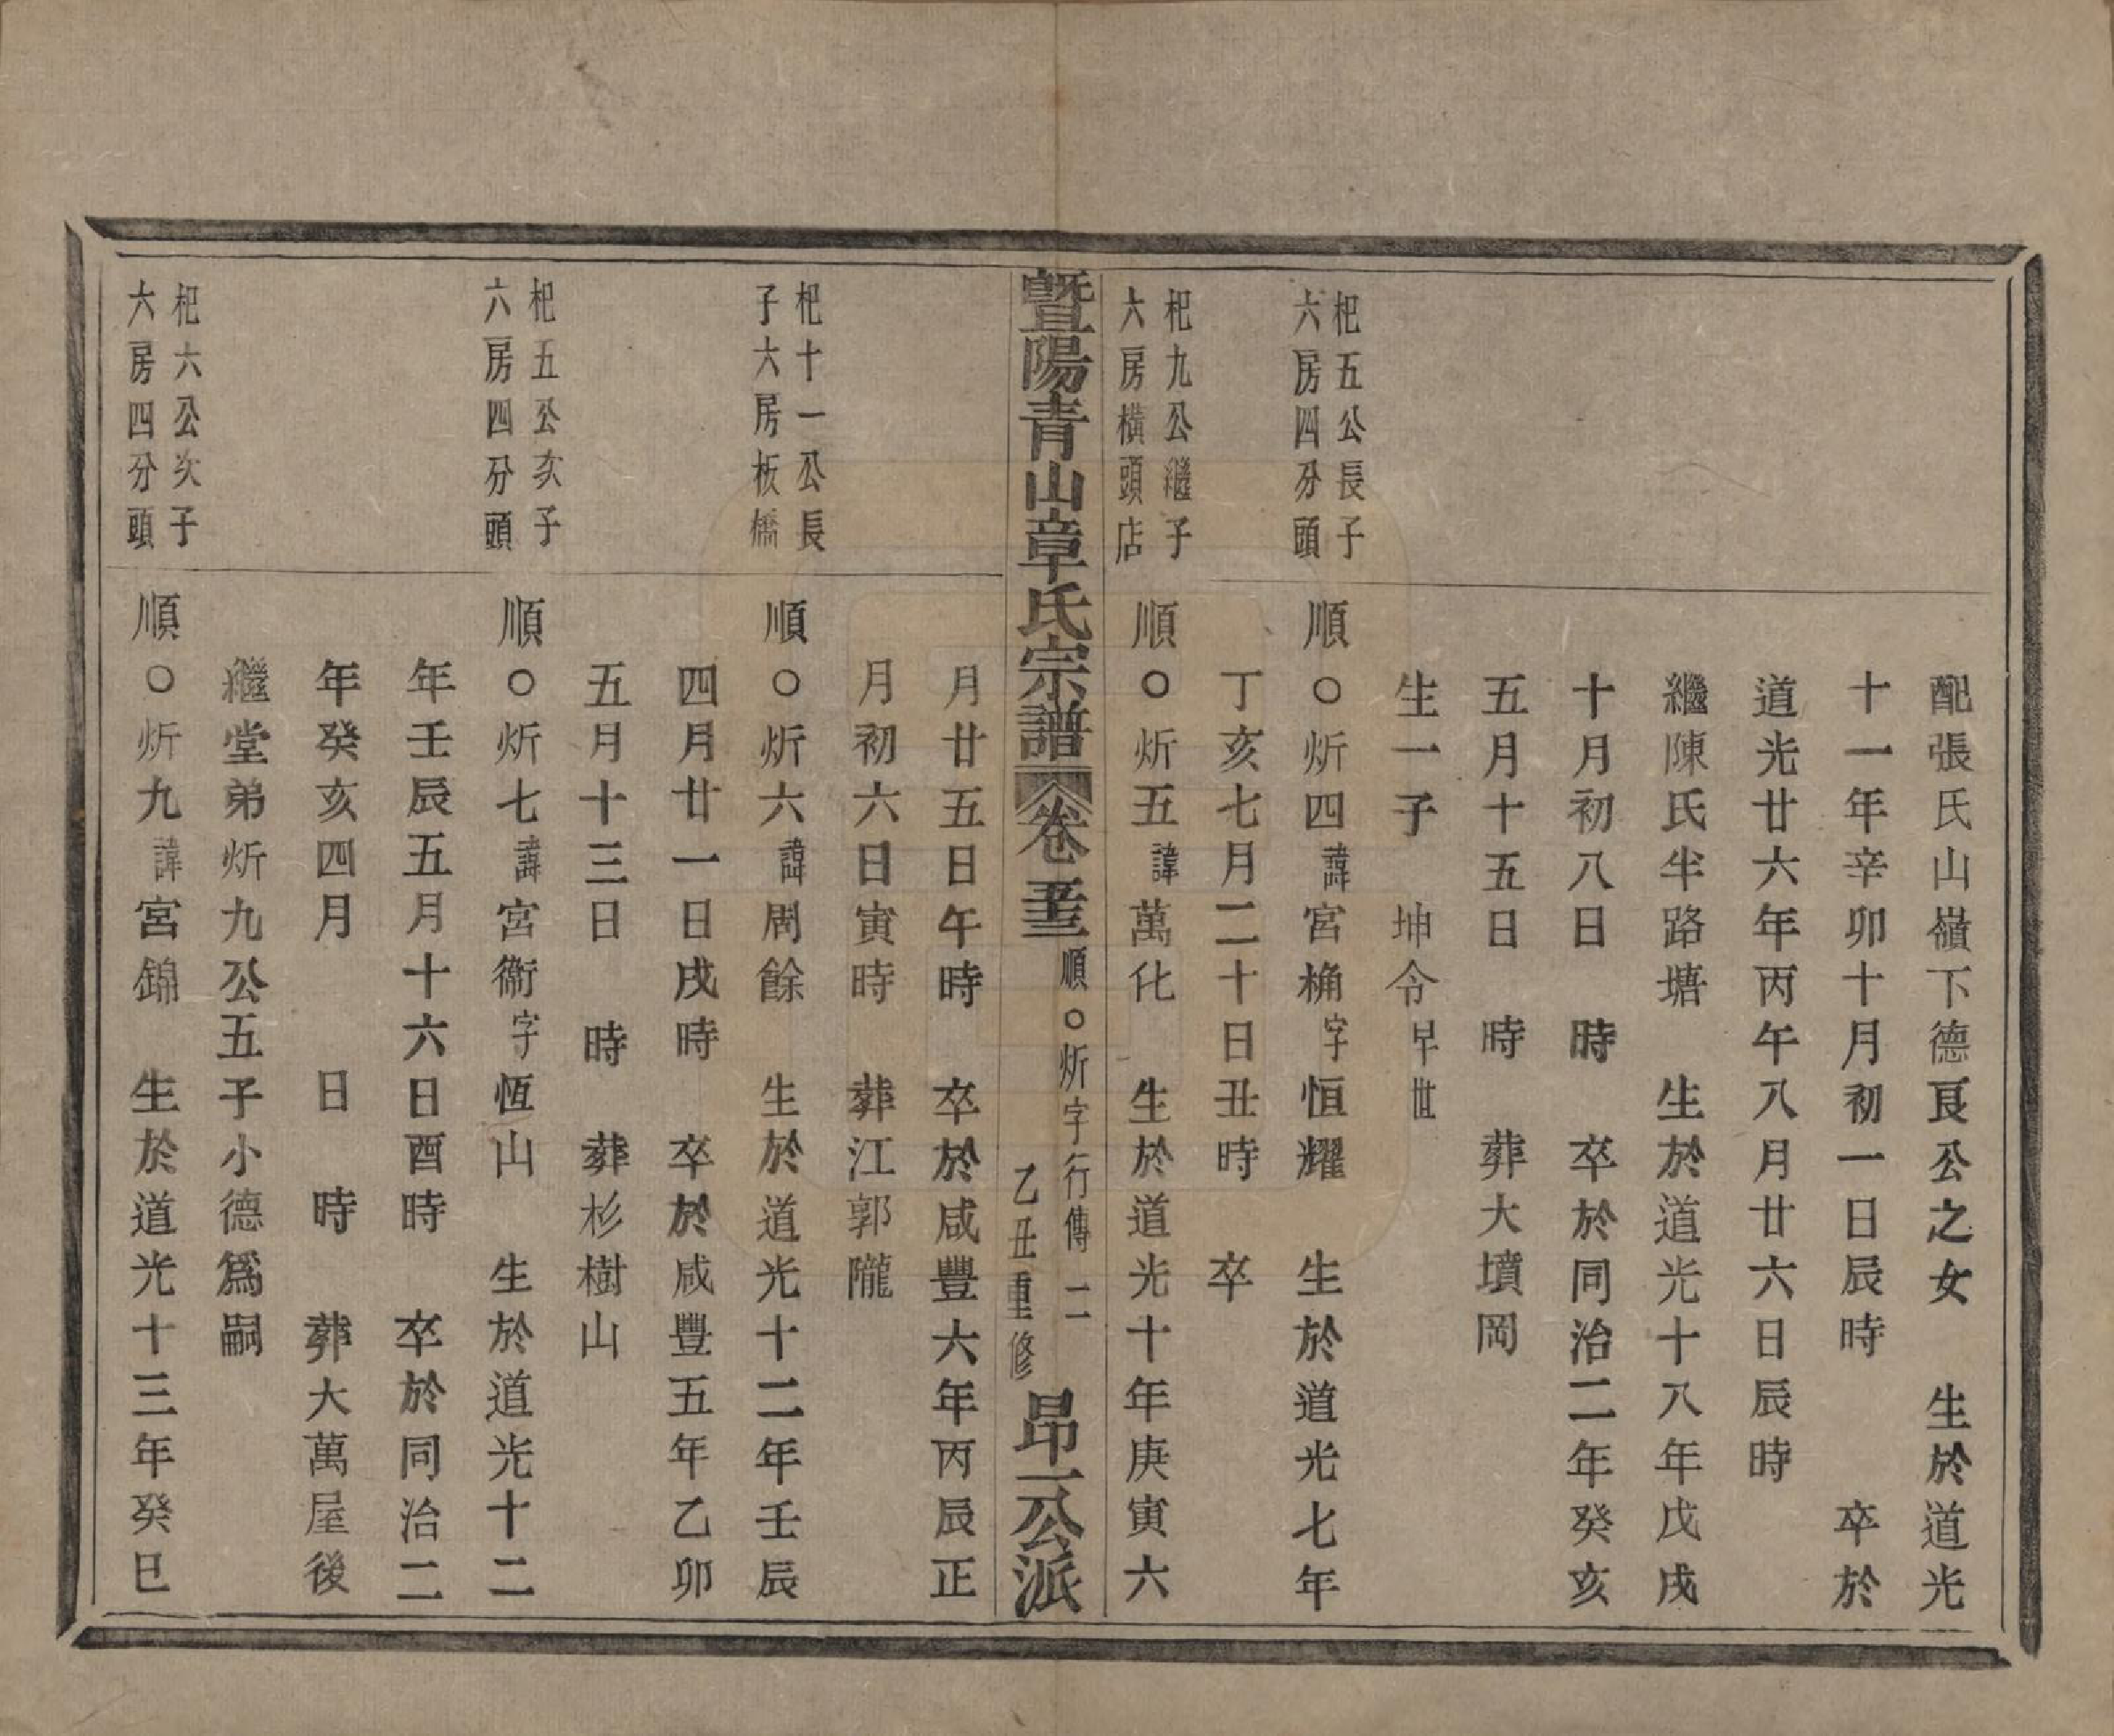 配張氏山嶺下德良公之女　生於道光
十一年辛卯十月初一日辰時　卒於
道光廿六年丙午八月廿六日辰時
繼陳氏半路塘　生於道光十八年戊戌
十月初八日　時　卒於同治二年癸亥
五月十五日　時　葬大墳岡
生一子　坤令早世
杞五公長子
六房四分頭
順○炘四諱宮桷字恒耀　生於道光七年
丁亥七月二十日丑時　卒
杞九公繼子
大房橫頭店
順○炘五諱萬化　生於道光十年庚寅六
暨陽青山章氏宗譜
順○炘字行傳　二
乙丑重修
昂一公派
月廿五日午時　卒於咸豐六年丙辰正
月初六日寅時　葬江郭隴
杞十一公長
子大房板橋
順○炘六諱周餘　生於道光十二年壬辰
四月廿一日戌時　卒於咸豐五年乙卯
五月十三日　時　葬杉樹山
杞五公次子
六房四分頭
順○炘七諱宮衞字恆山　生於道光十二
年壬辰五月十六日酉時　卒於同治二
年癸亥四月　日　時　葬大萬屋後
繼堂弟炘九公五子小德爲嗣
杞六公次子
六房四分頭
順○炘九諱宮錦　生於道光十三年癸巳